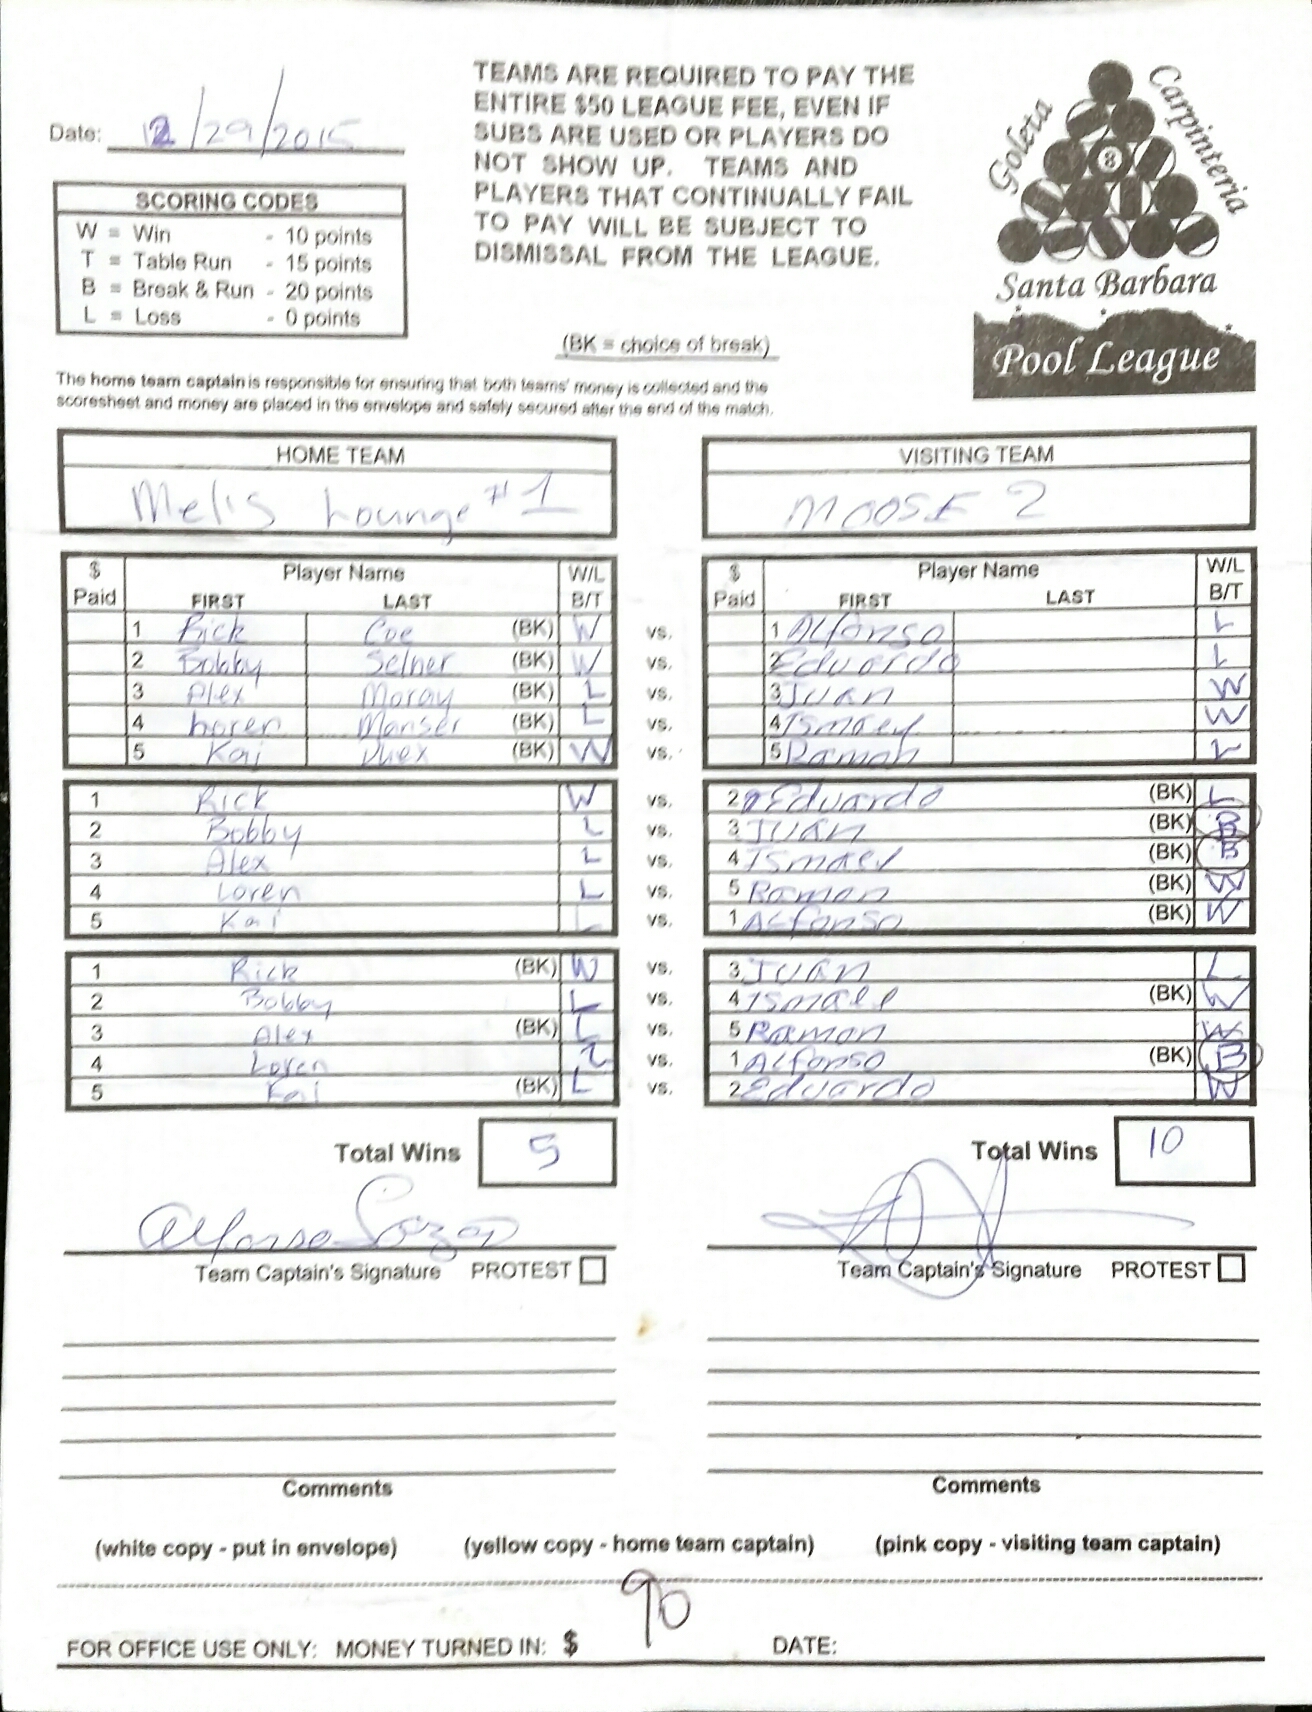 Date: 12/29/2015
TEAMS ARE REQUIRED TO PAY THE
ENTIRE $50 LEAGUE FEE, EVEN IF
SUBS ARE USED OR PLAYERS DO
NOT SHOW UP. TEAMS AND
PLAYERS THAT CONTINUALLY FAIL
TO PAY WILL BE SUBJECT TO
DISMISSAL FROM THE LEAGUE.
Goleta
Carpinteria
8
Santa Barbara
Pool League
SCORING CODES
W = Win - 10 points
T = Table Run - 15 points
B = Break & Run - 20 points
L = Loss - 0 points
(BK = choice of break)
The home team captain is responsible for ensuring that both teams' money is collected and the
scoresheet and money are placed in the envelope and safely secured after the end of the match.
HOME TEAM VISITING TEAM
Mel's Lounge #1 MOOSE 2
$ Player Name W/L $ Player Name W/L
Paid FIRST LAST B/T Paid FIRST LAST B/T
1 Rick Coe (BK) W vs. 1 Alfonso L
2 Bobby Selner (BK) W vs. 2 Eduardo L
3 Alex Moray (BK) L vs. 3 Juan W
4 Loren Manser (BK) L vs. 4 W
5 Kai (BK) W vs. 5 Ramon L
1 Rick W vs. 2 Eduardo (BK) L
2 Bobby L vs. 3 Juan (BK) B
3 Alex L vs. 4 Ismael (BK) B
4 Loren L vs. 5 Ramon (BK) W
5 Kai L vs. 1 Alfonso (BK) W
1 Rick (BK) W vs. 3 Juan L
2 Bobby L vs. 4 Ismael (BK) W
3 Alex (BK) L vs. 5 Ramon W
4 Loren L vs. 1 Alfonso (BK) B
5 Kai (BK) L vs. 2 Eduardo W
Total Wins 5 Total Wins 10
Alfonso
Team Captain's Signature PROTEST Team Captain's Signature PROTEST
Comments Comments
(white copy - put in envelope) (yellow copy - home team captain) (pink copy - visiting team captain)
FOR OFFICE USE ONLY: MONEY TURNED IN: $ 90 DATE: